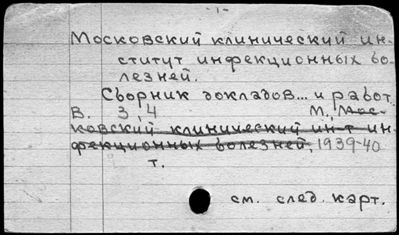 - 1 -
Московский клинический ин-
ститут инфекционных бо-
лезней.
Сборник докладов... и работ.
В. 3, 4 М., Мос-
ковский клинический ин-т ин-
фекционных болезней, 1939-40
т.
см. след. карт.